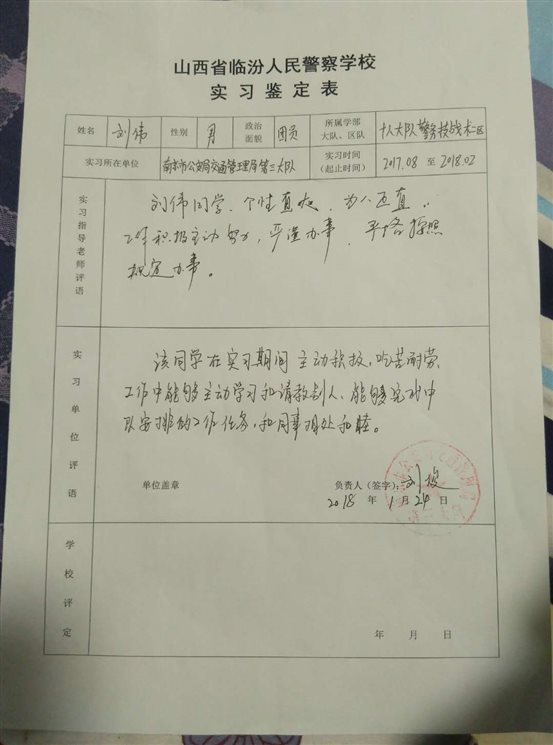 山西省临汾人民警察学校
实习鉴定表
姓名 刘伟 性别 男 政治面貌 团员 所属学部大队、区队 十八大队警务技战术二区
实习所在单位 南京市公安局交通管理局第三大队 实习时间（起止时间） 2017.08 至 2018.02
实习指导老师评语
刘伟同学、个性直爽、为人正直、
工作积极主动努力，严谨办事、严格按照
规定办事。
实习单位评语
该同学在实习期间主动积极，吃苦耐劳
工作中能够主动学习和请教别人，能够完成中
队安排的工作任务，和同事相处和睦。
单位盖章 负责人（签字）：刘
2018 年 1 月 24 日
学校评定
年 月 日